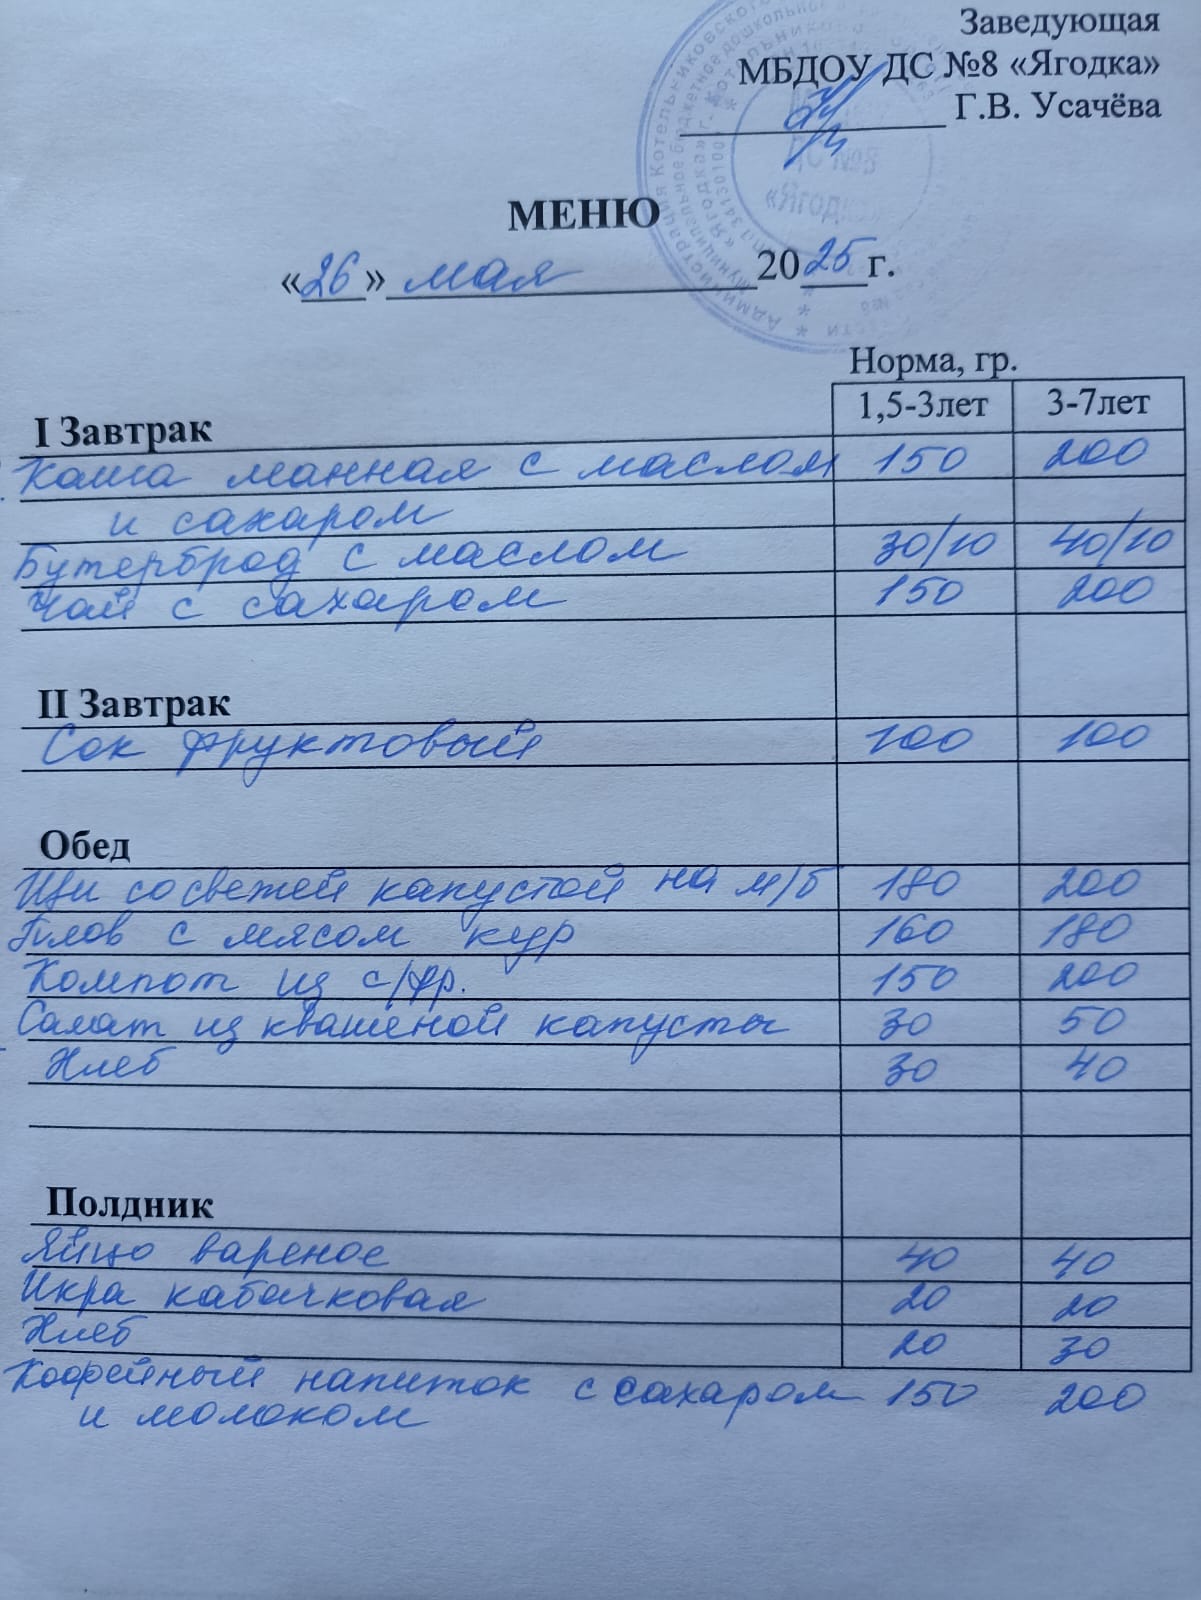 Заведующая
МБДОУ ДС №8 «Ягодка»
Г.В. Усачёва
ДС №8
«Ягодка»
МЕНЮ
«26» мая 2025 г.
Норма, гр.
I Завтрак 1,5-3лет 3-7лет
Каша манная с маслом 150 200
и сахаром
Бутерброд с маслом 30/10 40/10
Чай с сахаром 150 200
II Завтрак
Сок фруктовый 100 100
Обед
Щи со свежей капустой на м/б 180 200
Плов с мясом кур 160 180
Компот из с/фр. 150 200
Салат из квашеной капусты 30 50
Хлеб 30 40
Полдник
Яйцо вареное 40 40
Икра кабачковая 20 20
Хлеб 20 30
Кофейный напиток с сахаром 150 200
и молоком